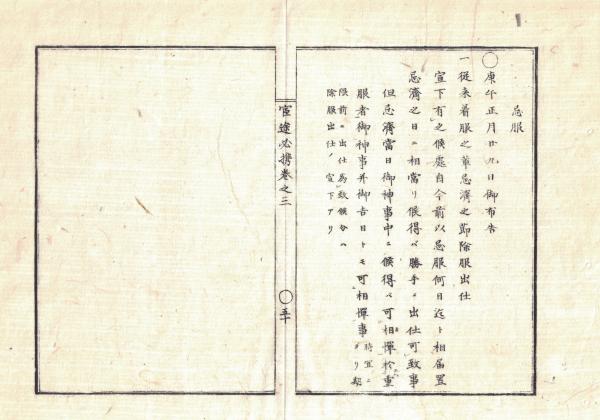 忌服
◯庚午正月廿九日御布告
一従来着服之輩忌済之節除服出仕
宣下有之候處自今前以忌服何日迄ト相届置
忌済之日ニ相當リ候得バ勝手ニ出仕可致事
但忌済當日御神事中ニ候得バ可相憚於重
服者御神事并御吉日トモ可相憚事 時宜ニヨリ
限前ニ出仕為致候分ハ
除服出仕ノ宣下アリ
官途必携巻之三
◯五十